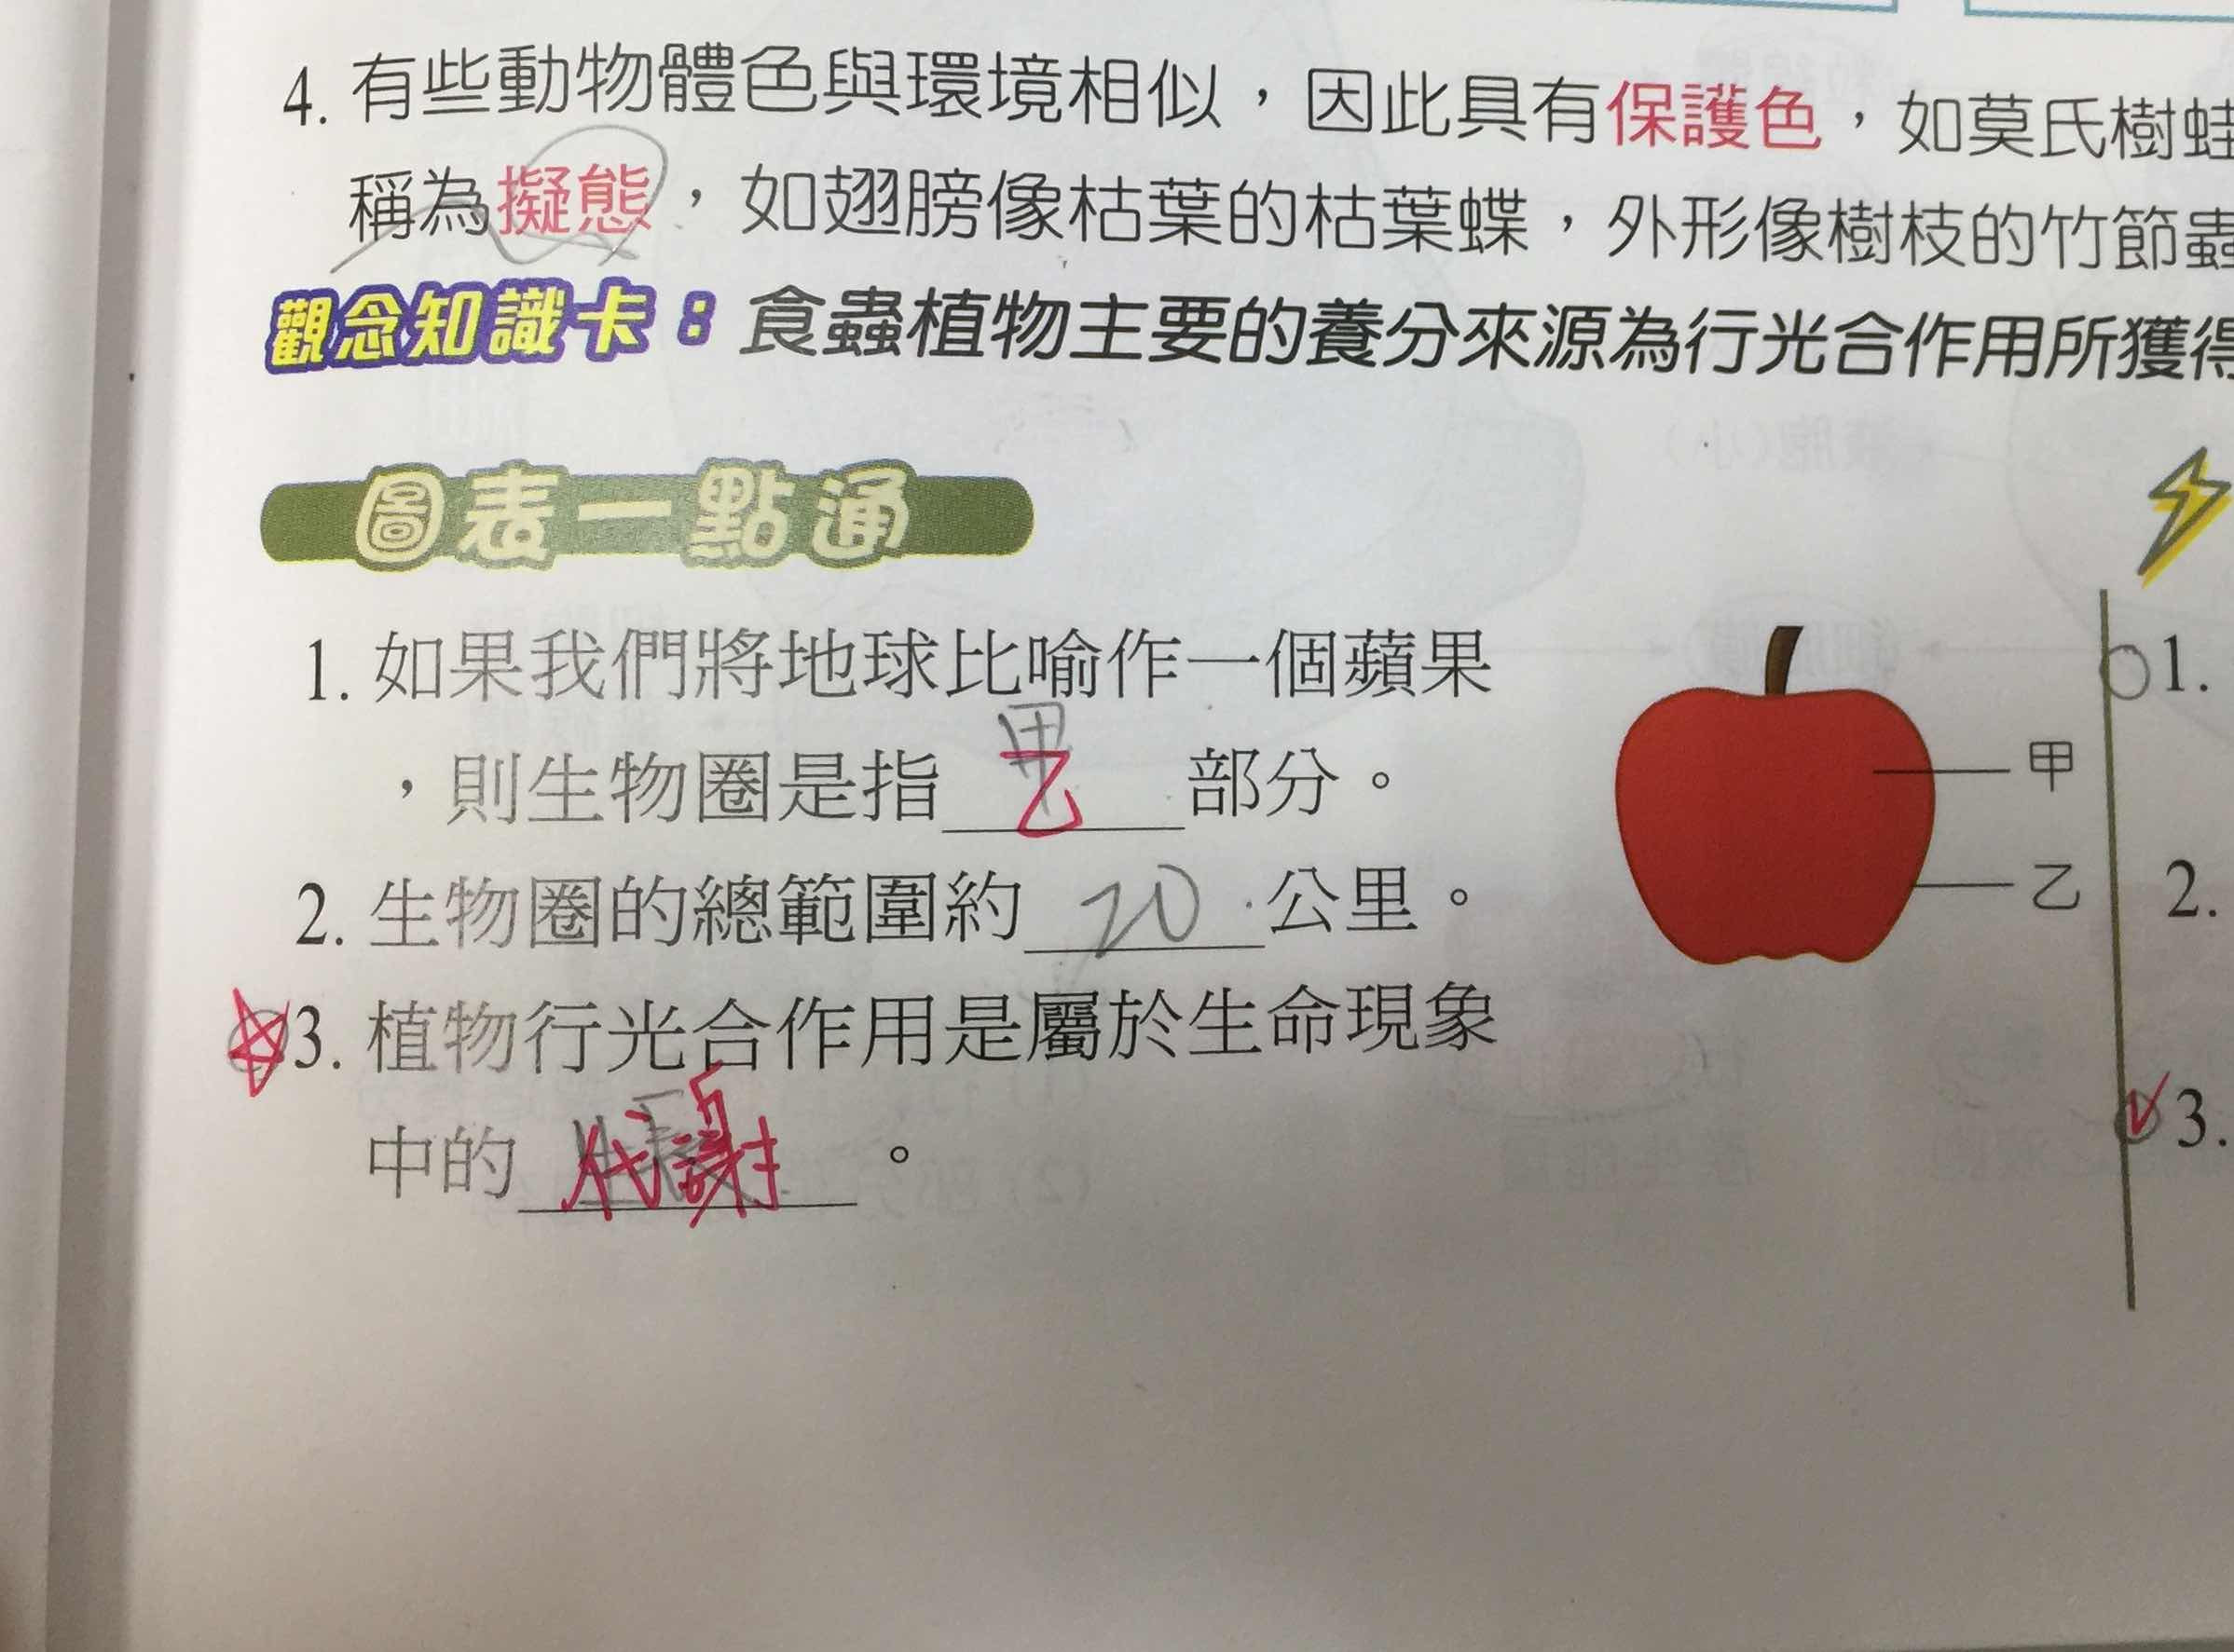 4. 有些動物體色與環境相似，因此具有保護色，如莫氏樹蛙
稱為擬態，如翅膀像枯葉的枯葉蝶，外形像樹枝的竹節蟲
觀念知識卡：食蟲植物主要的養分來源為行光合作用所獲得
圖表一點通
1. 如果我們將地球比喻作一個蘋果
，則生物圈是指 甲 乙 部分。
2. 生物圈的總範圍約 20 公里。
3. 植物行光合作用是屬於生命現象
中的 代謝 。
甲
乙
1.
2.
3.